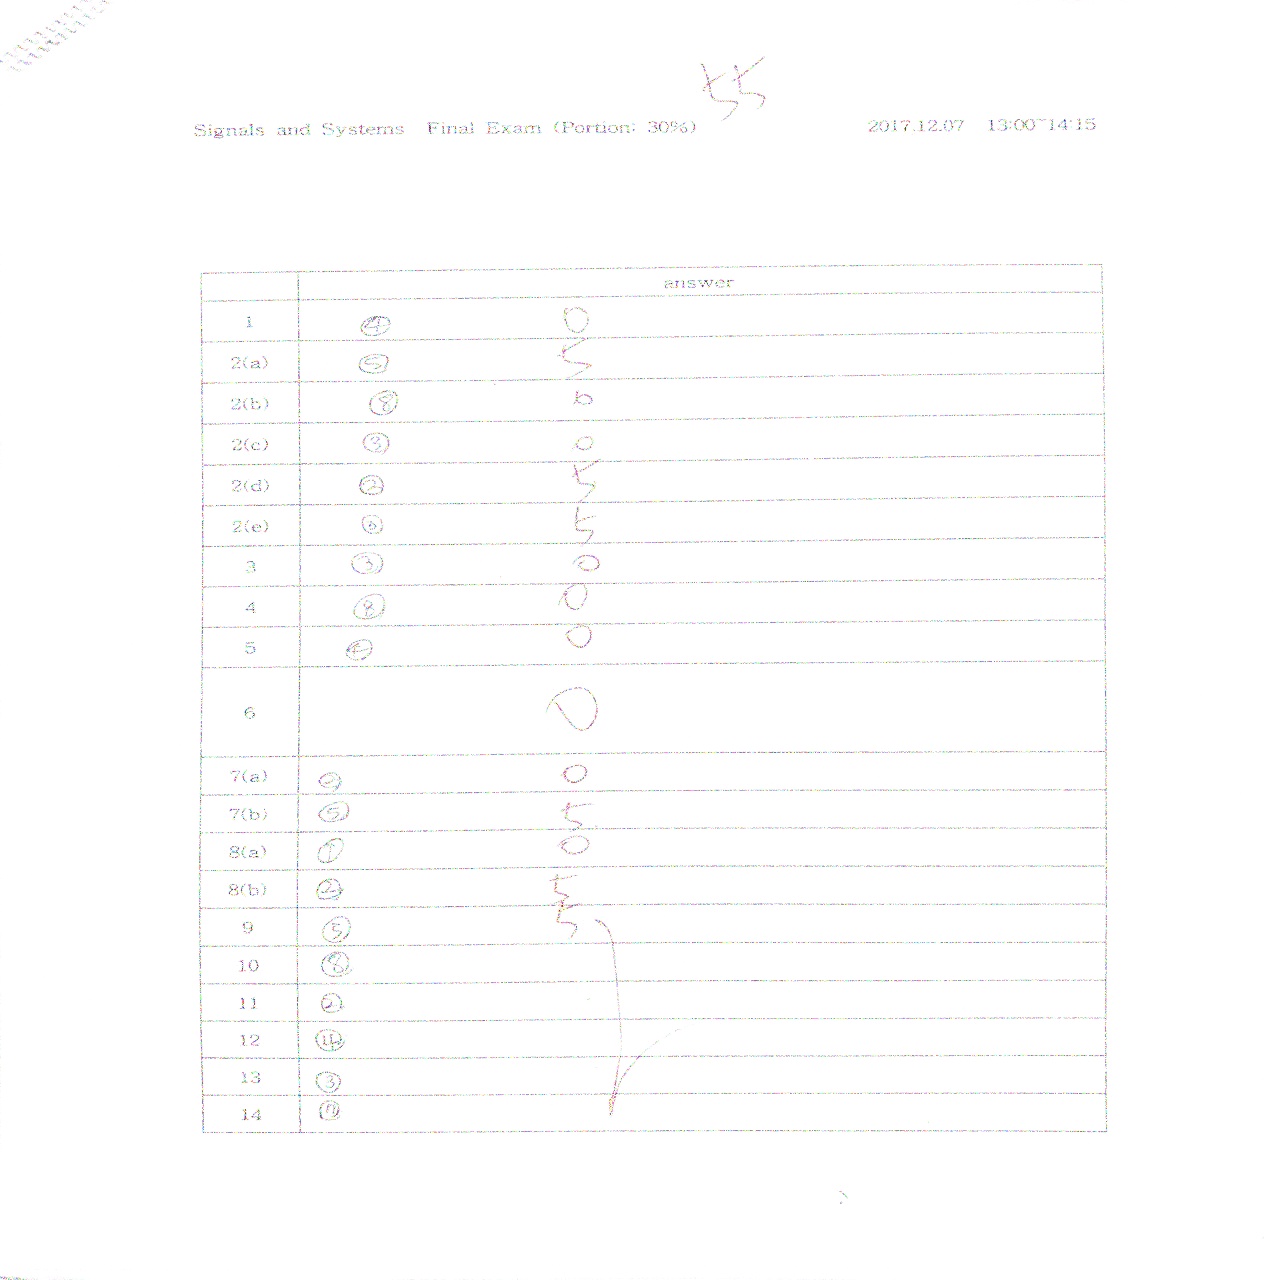 55
Signals and Systems Final Exam (Portion: 30%) 2017.12.07 13:00~14:15
answer
1 ④ 0
2(a) ⑤ 5
2(b) ⑧ 0
2(c) ③ 0
2(d) ② 5
2(e) 5
3 ③ 0
4 ⑧ 0
5 0
6 0
7(a) 0
7(b) ⑤ 5
8(a) ① 0
8(b) ② 5
9 ⑤ 5
10 ⑧
11
12 ⑭
13 ③
14